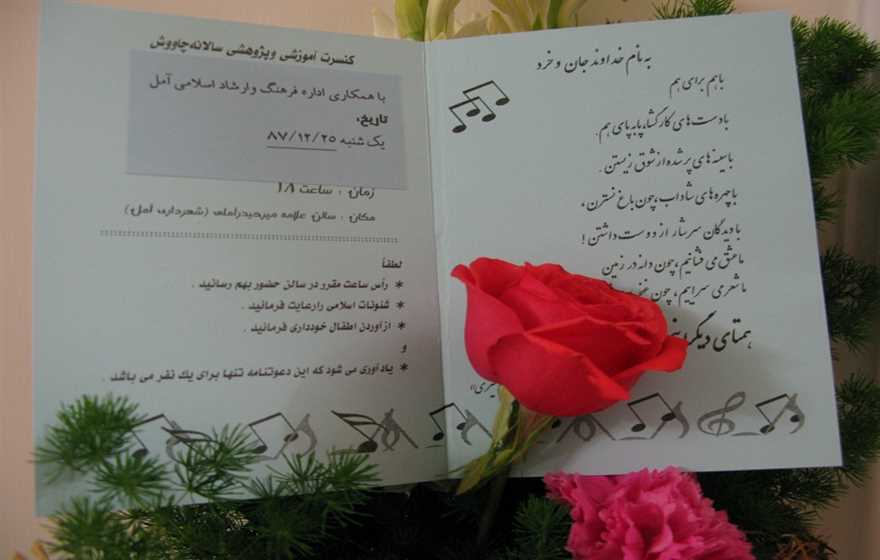 به نام خداوند جان و خرد
باهم برای هم
بادست‌های کارگشا، پابه‌پای هم.
باسینه‌های پر شده از شوق زیستن.
باچهره‌های شاداب، چون باغ نسترن،
با دیدگان سرشار از دوست داشتن!
ما عشق می فشانیم، چون دانه در زمین
ما شعر می سراییم، چون
همتای دیگر
کنسرت آموزشی وپژوهشی سالانه‌چاووش
با همکاری اداره فرهنگ و ارشاد اسلامی آمل
تاریخ:
یک شنبه ۸۷/۱۲/۲۵
زمان : ساعت ۱۸
مکان : سالن علامه میرحیدرآملی (شهرداری آمل)
لطفاً
* رأس ساعت مقرر در سالن حضور بهم رسانید .
* شئونات اسلامی را رعایت فرمائید .
* از آوردن اطفال خودداری فرمائید .
و
* یادآوری می شود که این دعوتنامه تنها برای یك نفر می باشد .